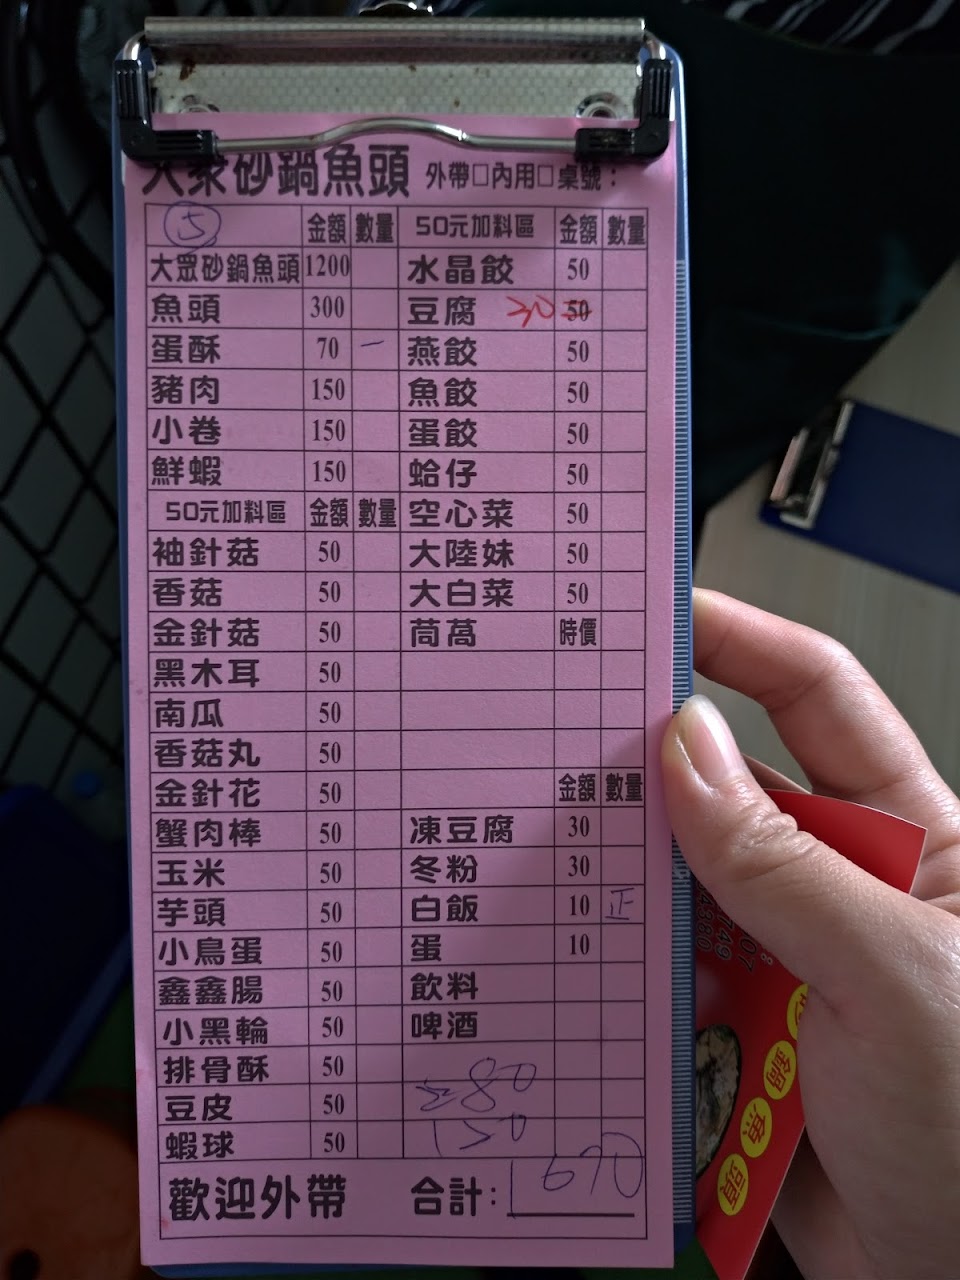 大眾砂鍋魚頭 外帶□內用□桌號：
5 金額 數量 50元加料區 金額 數量
大眾砂鍋魚頭 1200 水晶餃 50
魚頭 300 豆腐 30 50
蛋酥 70 一 燕餃 50
豬肉 150 魚餃 50
小卷 150 蛋餃 50
鮮蝦 150 蛤仔 50
50元加料區 金額 數量 空心菜 50
袖針菇 50 大陸妹 50
香菇 50 大白菜 50
金針菇 50 茼萵 時價
黑木耳 50
南瓜 50
香菇丸 50
金針花 50 金額 數量
蟹肉棒 50 凍豆腐 30
玉米 50 冬粉 30
芋頭 50 白飯 10 正
小鳥蛋 50 蛋 10
鑫鑫腸 50 飲料
小黑輪 50 啤酒
排骨酥 50
豆皮 50
蝦球 50 150
歡迎外帶 合計：1670
07
749
4380
鍋
魚
頭